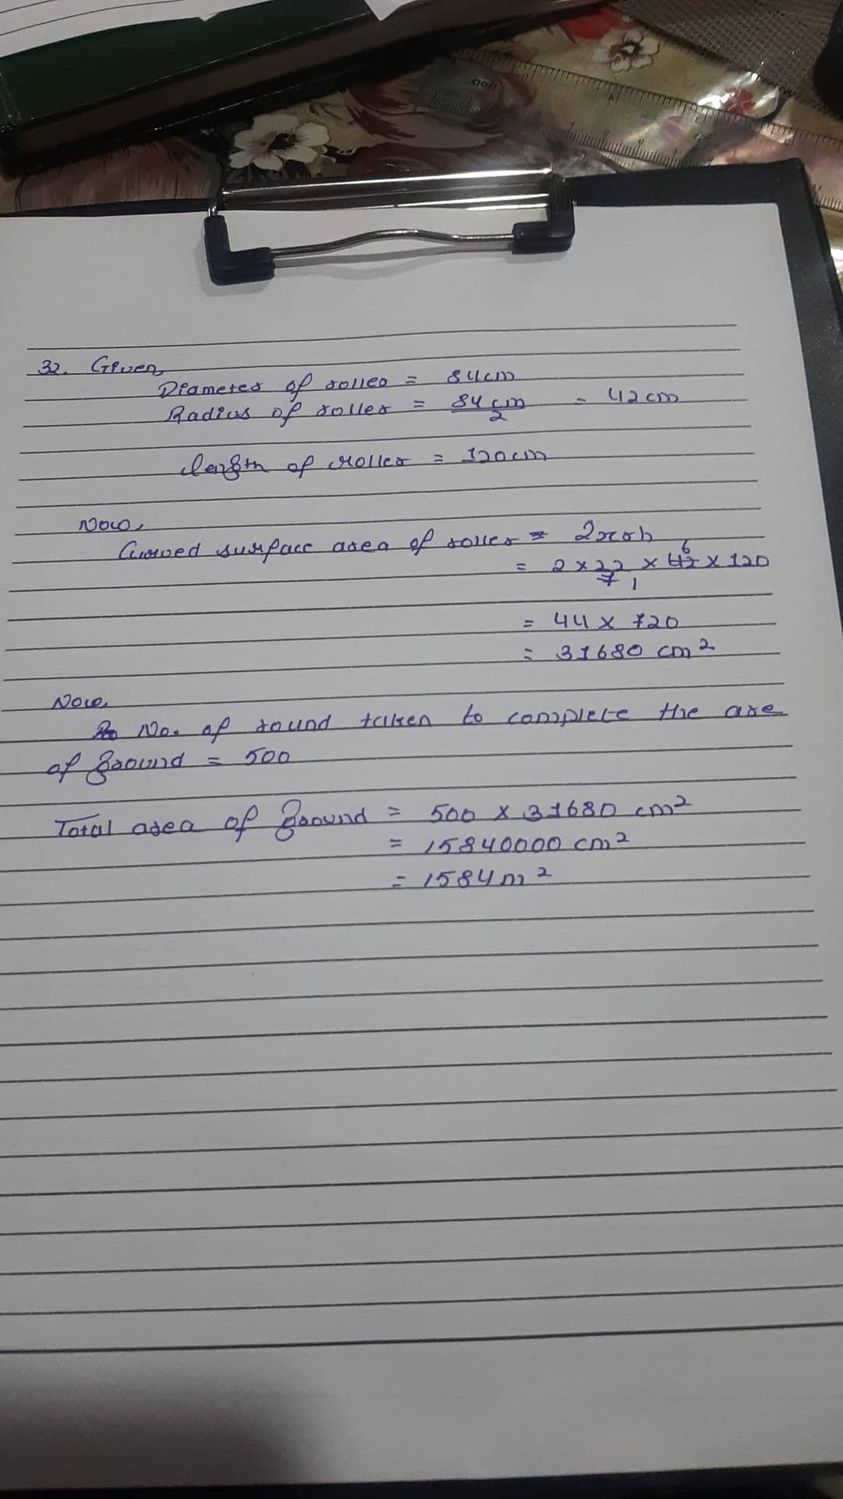 32. Given,
Diameter of roller = 84cm
Radius of roller = 84 cm/2 = 42cm
length of roller = 120cm
Now,
Curved surface area of roller = 2πrh
= 2 × 22/7 × 42 × 120
6
1
= 44 × 720
= 31680 cm²
Now,
No. of round taken to complete the are
of ground = 500
Total area of ground = 500 × 31680 cm²
= 15840000 cm²
= 1584m²